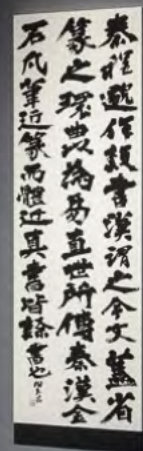 秦程邈作隸書漢謂之今文蓋省
篆之環曲以為易直世所傳秦漢金
石凡筆近篆而體近真書皆隸書也